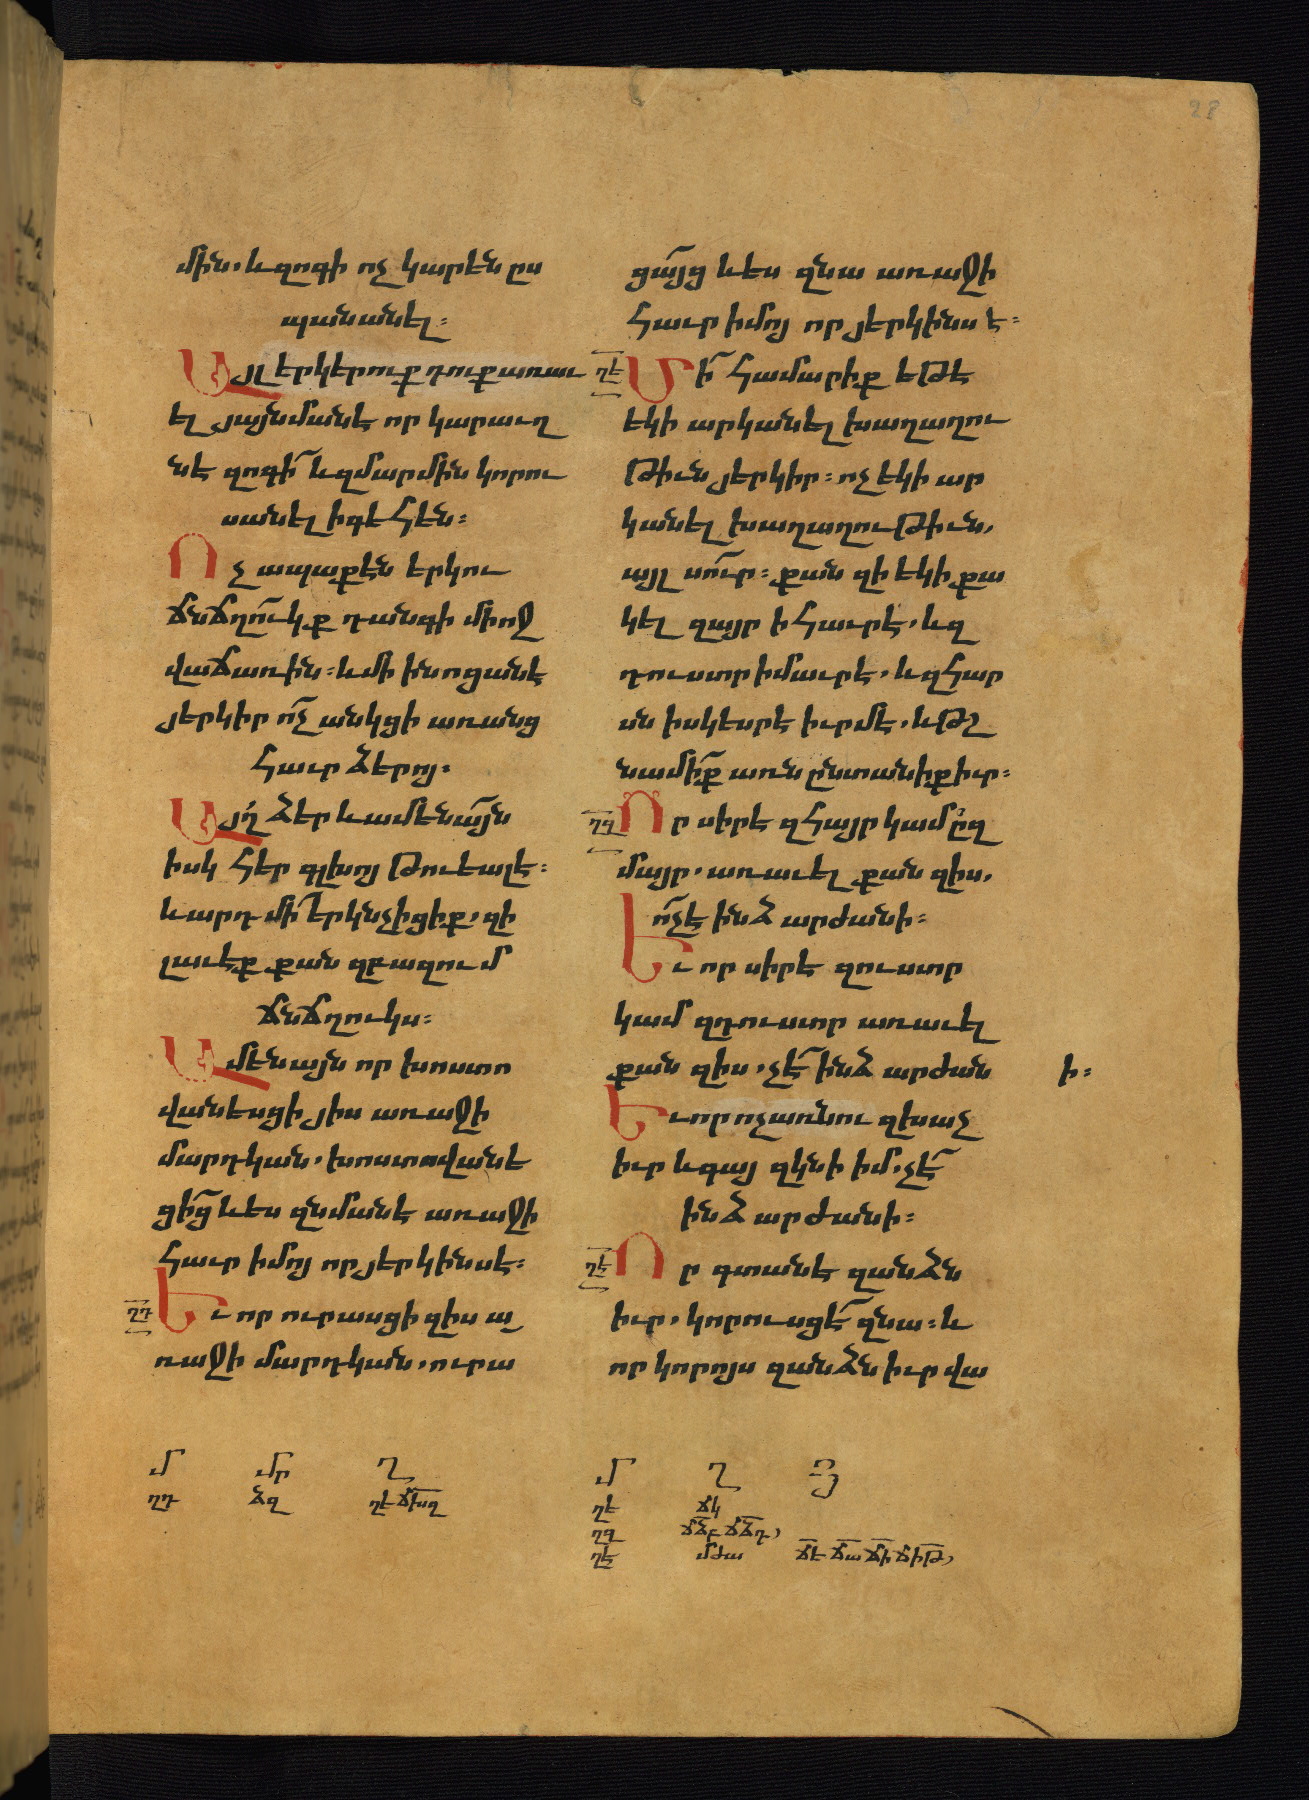 28
մին. և զոգի ոչ կարեն ըս
պանանել։
Այլ երկերուք դուք առաւ
ել յայնմանէ որ կարաւղ
նէ զոգի և զմարմին կորու
սանել ի գեհեն։
Ոչ ապաքէն երկու
ճնճղուկք դանգի միոջ
վաճառին։ և մի ի նոցանէ
յերկիր ոչ անկցի առանց
հաւր ձերոյ։
Այղ ձեր և ամենայն
իսկ հեր գլխոյ թուեալ է։
և արդ մի երկնչիցիք. զի
լաւ էք քան զբազում
ճնճղուկս։
Ամենայն որ խոստո
վանեսցի յիս առաջի
մարդկան. խոստովանե
ցից և ես զնմանէ առաջի
հաւր իմոյ որ յերկինս է։
ՂԴ
Եւ որ ուրասցի զիս ա
ռաջի մարդկան. ուրա
ցայց և ես զնա առաջի
հաւր իմոյ որ յերկինս է։
ՂԵ
Մի համարիք եթէ
եկի արկանել խաղաղու
թիւն յերկիր։ ոչ եկի ար
կանել խաղաղութիւն,
այլ սուր։ քան զի եկի քա
կել զայր ի հաւրէ. և զ
դուստր ի մաւրէ. և զհար
սն ի սկեսրէ իւրմէ. և թշ
նամիք առն ընտանիք իւր։
ՂԶ
Որ սիրէ զհայր կամ ըզ
մայր. առաւել քան զիս,
ոչ է ինձ արժանի։
Եւ որ սիրէ զուստր
կամ զդուստր առաւել
քան զիս. չէ ինձ արժան ի։
Եւ որ ոչ առնու զխաչ
իւր և գայ զկնի իմ. չէ
ինձ արժանի։
ՂԷ
Որ գտանէ զանձն
իւր. կորուսցէ զնա։ և
որ կորոյս զանձն իւր վա
մ մր ղ
ղդ ձզ
մ ղ
ղե ճկ
ղզ
ղէ մժա